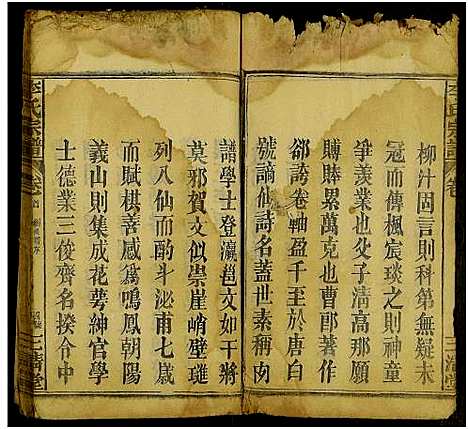 柳汁固言則科第無疑未
冠而傳楓宸琰之則神童
爭羨業也父子淸高那願
賻賵累萬克也曹郎著作
郤謗卷軸盈千至於唐
號謫仙詩名蓋世素稱肉
譜學士登瀛邕文如干將
莫邪賀文似崇崖峭壁璡
列八仙而酌斗泌甫七歳
而賦棋善感爲鳴鳳朝陽
義山則集成花萼紳官學
士德業三俊齊名揆令中
李氏宗譜
卷首
三濟堂
李氏宗譜
卷
三濟堂